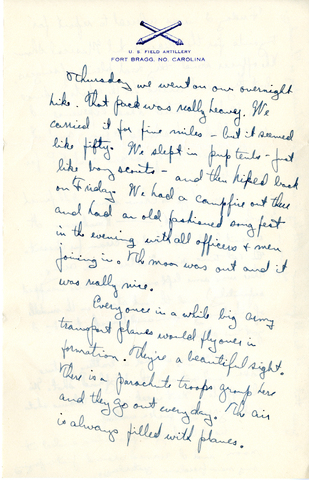 U. S. FIELD ARTILLERY
FORT BRAGG, NO. CAROLINA
Thursday we went on our overnight
hike. That pack was really heavy. We
carried it for five miles - but it seemed
like fifty. We slept in pup tents - just
like boy scouts - and then hiked back
on Friday. We had a campfire out there
and had an old fashioned song fest
in the evening with all officers + men
joining in. The moon was out and it
was really nice.
Every once in a while big army
transport planes would fly over in
formation. They're a beautiful sight.
There is a parachute troops group here
and they go out everyday. The air
is always filled with planes.